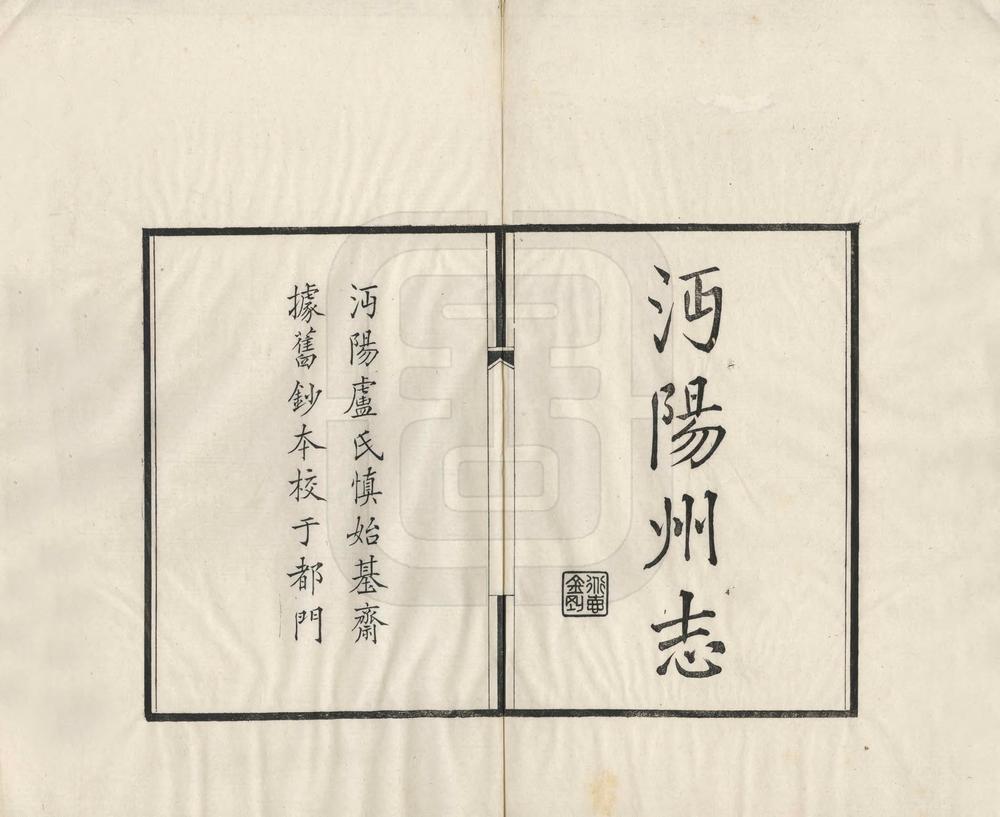 沔陽州志
沔陽盧氏慎始基齋
據舊鈔本校于都門